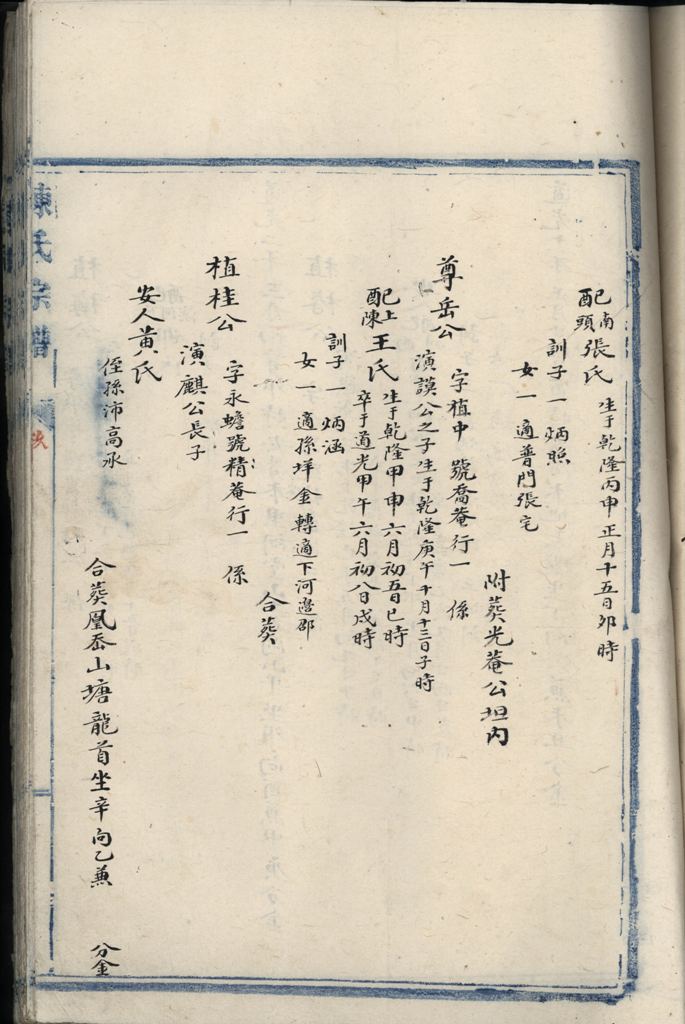 配南頭張氏 生于乾隆丙申正月十五日卯時
訓子一 炳照
女一 適普門張宅
附葬光菴公坦内
尊岳公 字植中 號喬菴行一 係
演謨公之子生于乾隆庚午十月十三日子時
配上陳王氏 生于乾隆甲申六月初五日巳時
卒于道光甲午六月初八日戌時
訓子一 炳涵
女一 適孫垟金轉適下河邉邵
合葬
植桂公 字永蟾號精菴行一 係
演麒公長子
安人黄氏
侄孫沛高承
合葬鳳岙山塘龍首坐辛向乙兼 分金
陳氏宗譜